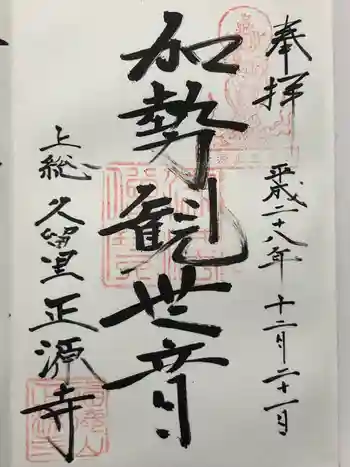 奉拝
平成二十八年 十二月二十一日
加勢観世音
上総 久留里 正源寺